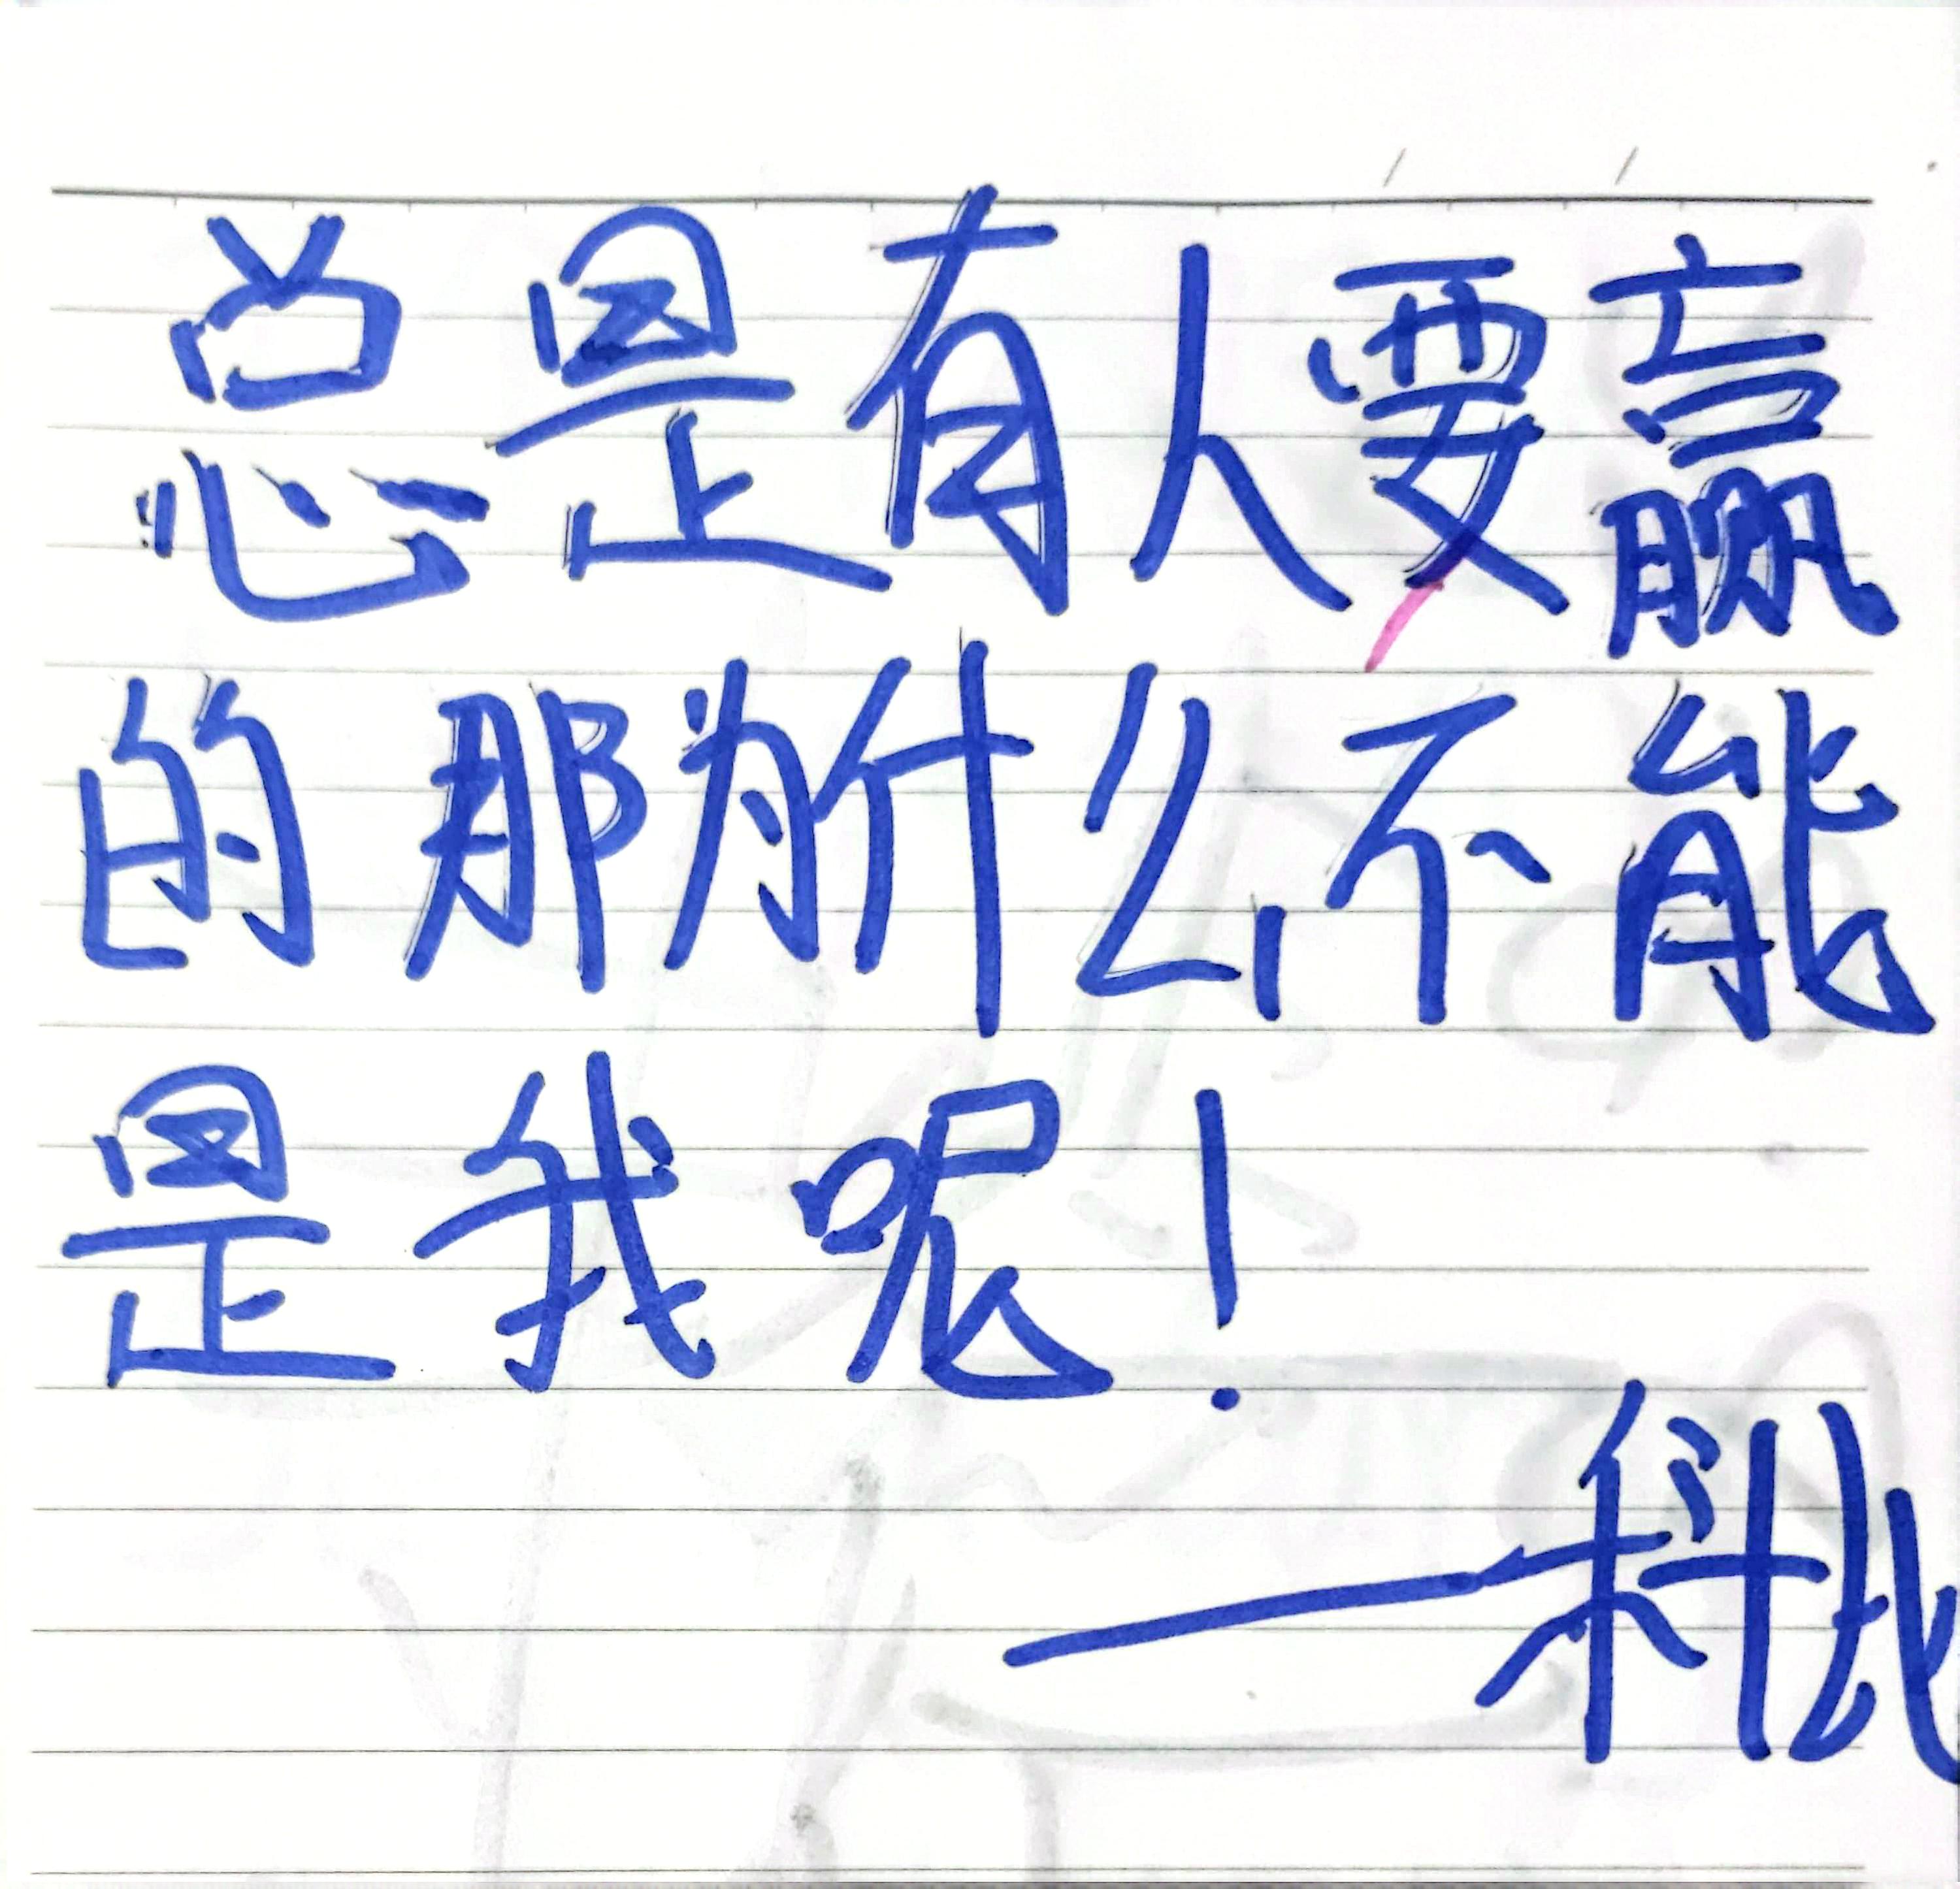 总是有人要赢
的那为什么不能
是我呢!
——科比